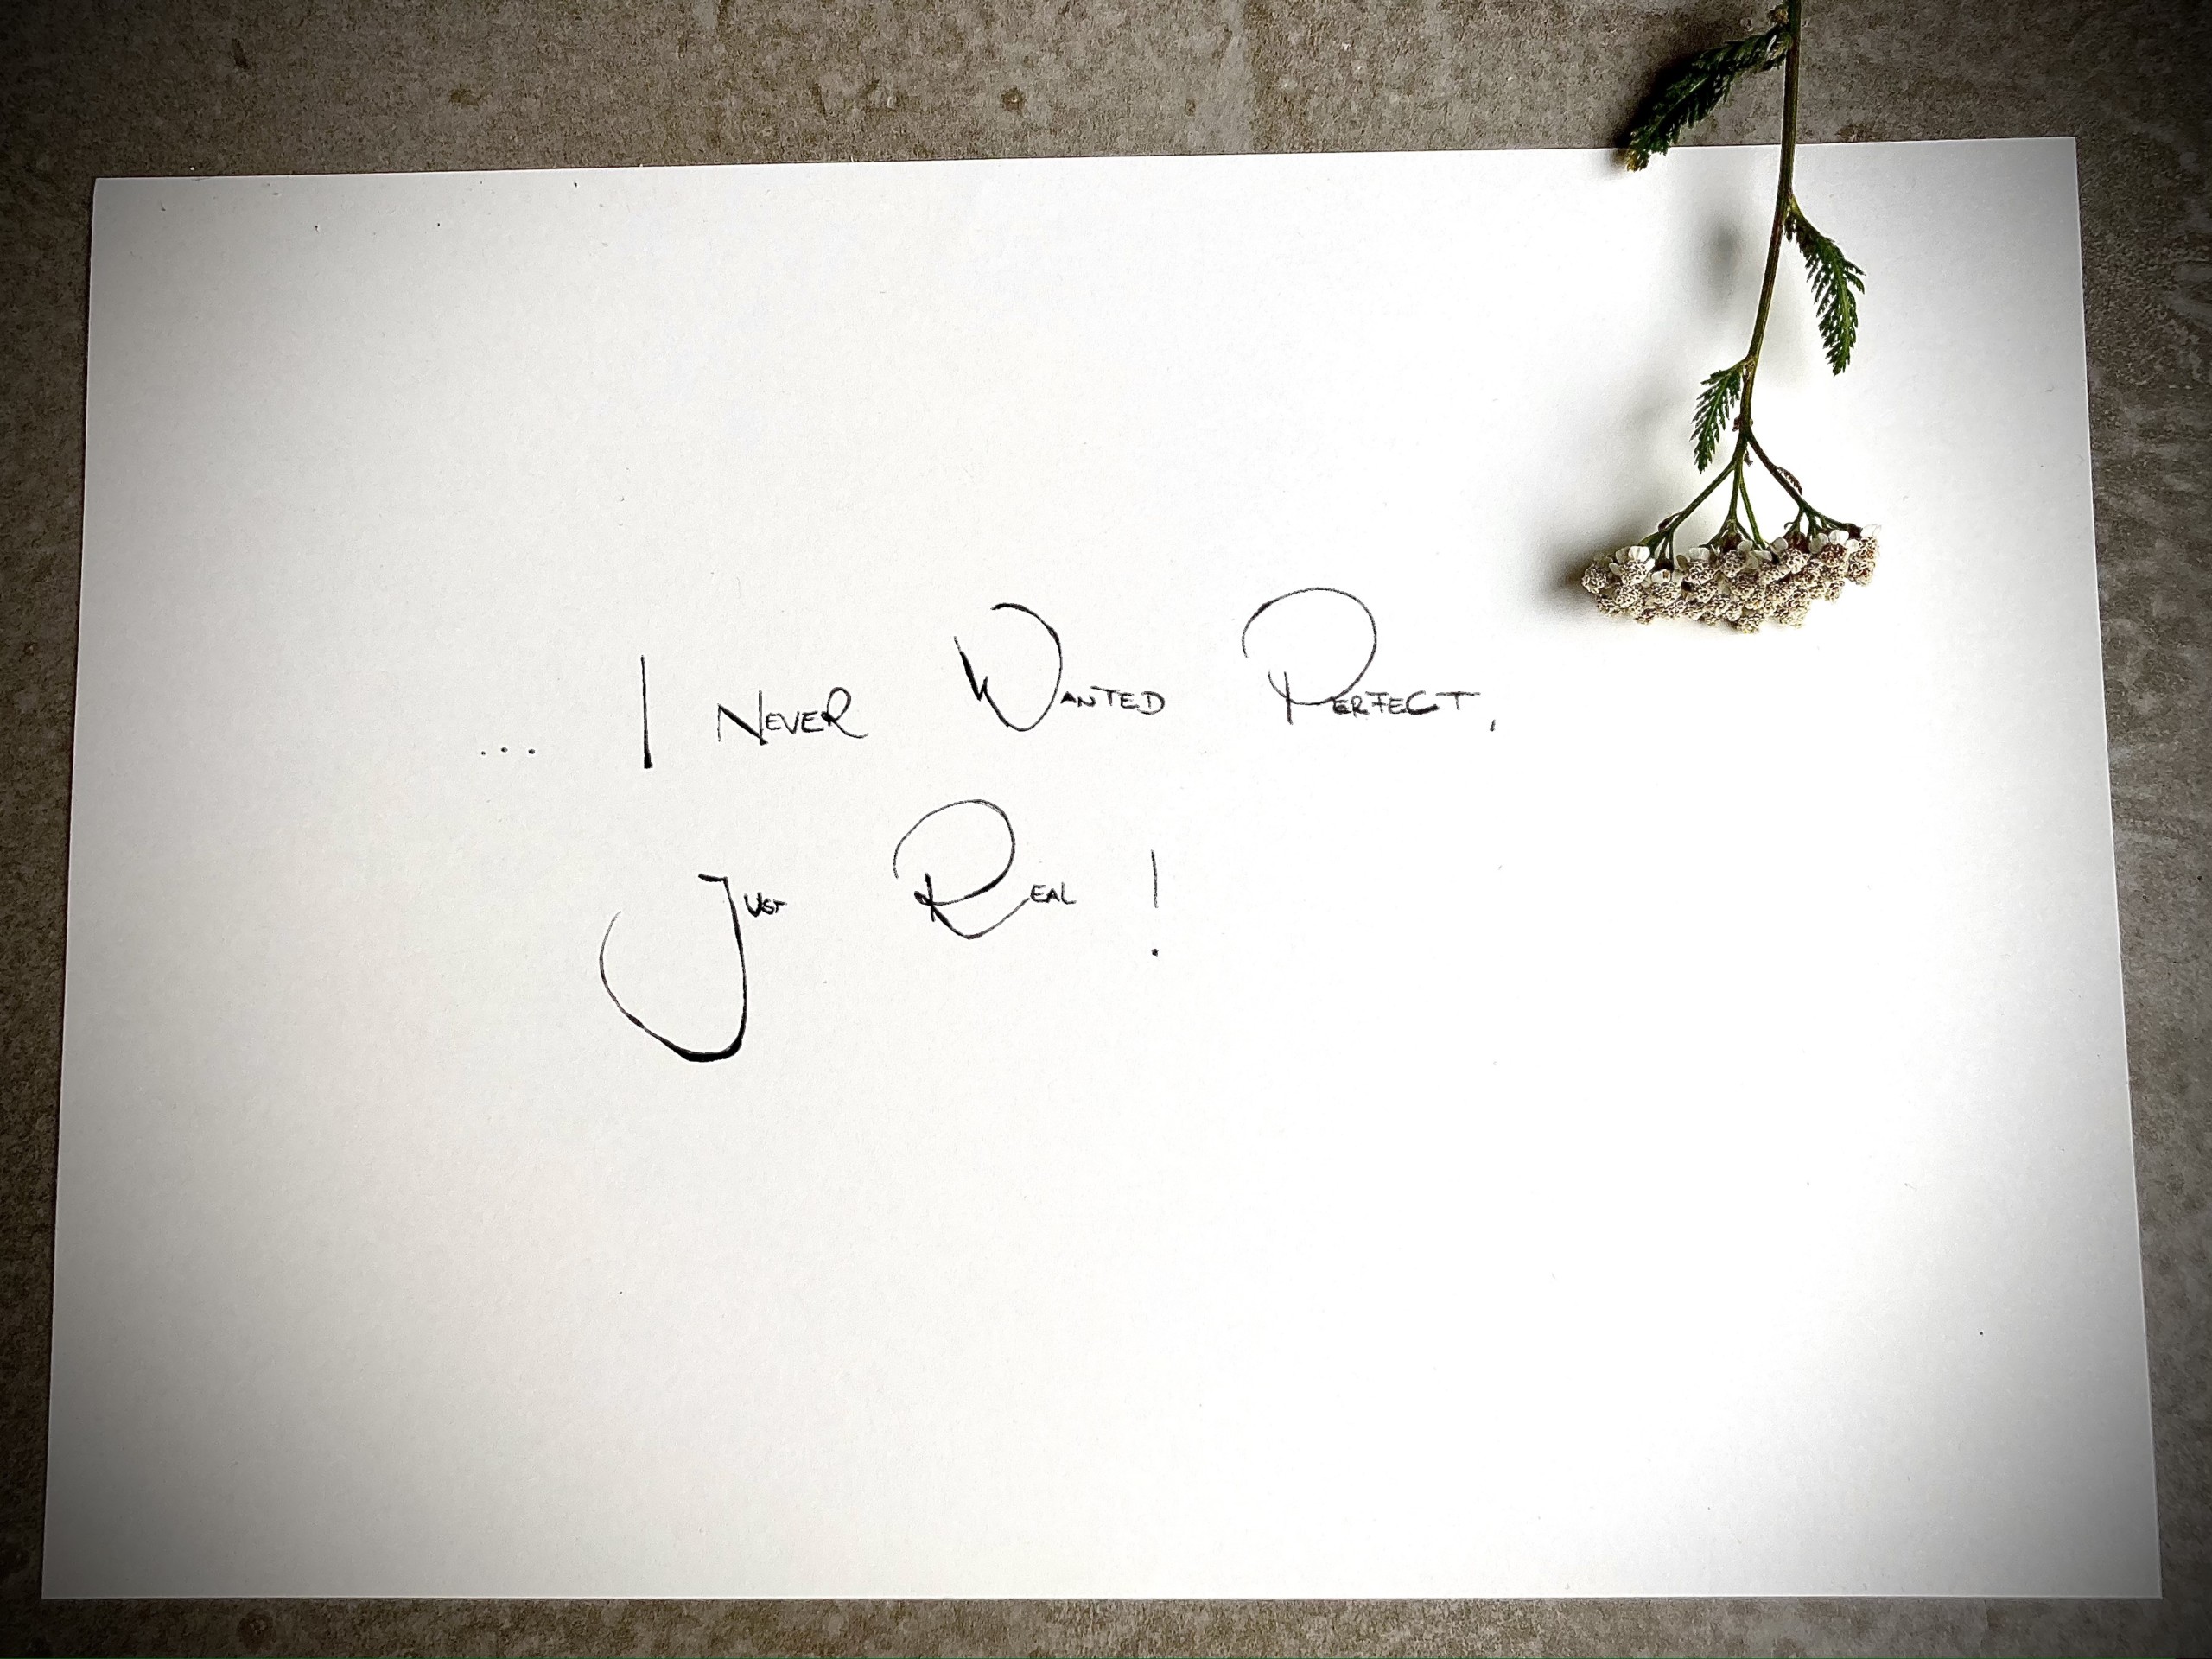 ... I Never Wanted Perfect,
Just Real !